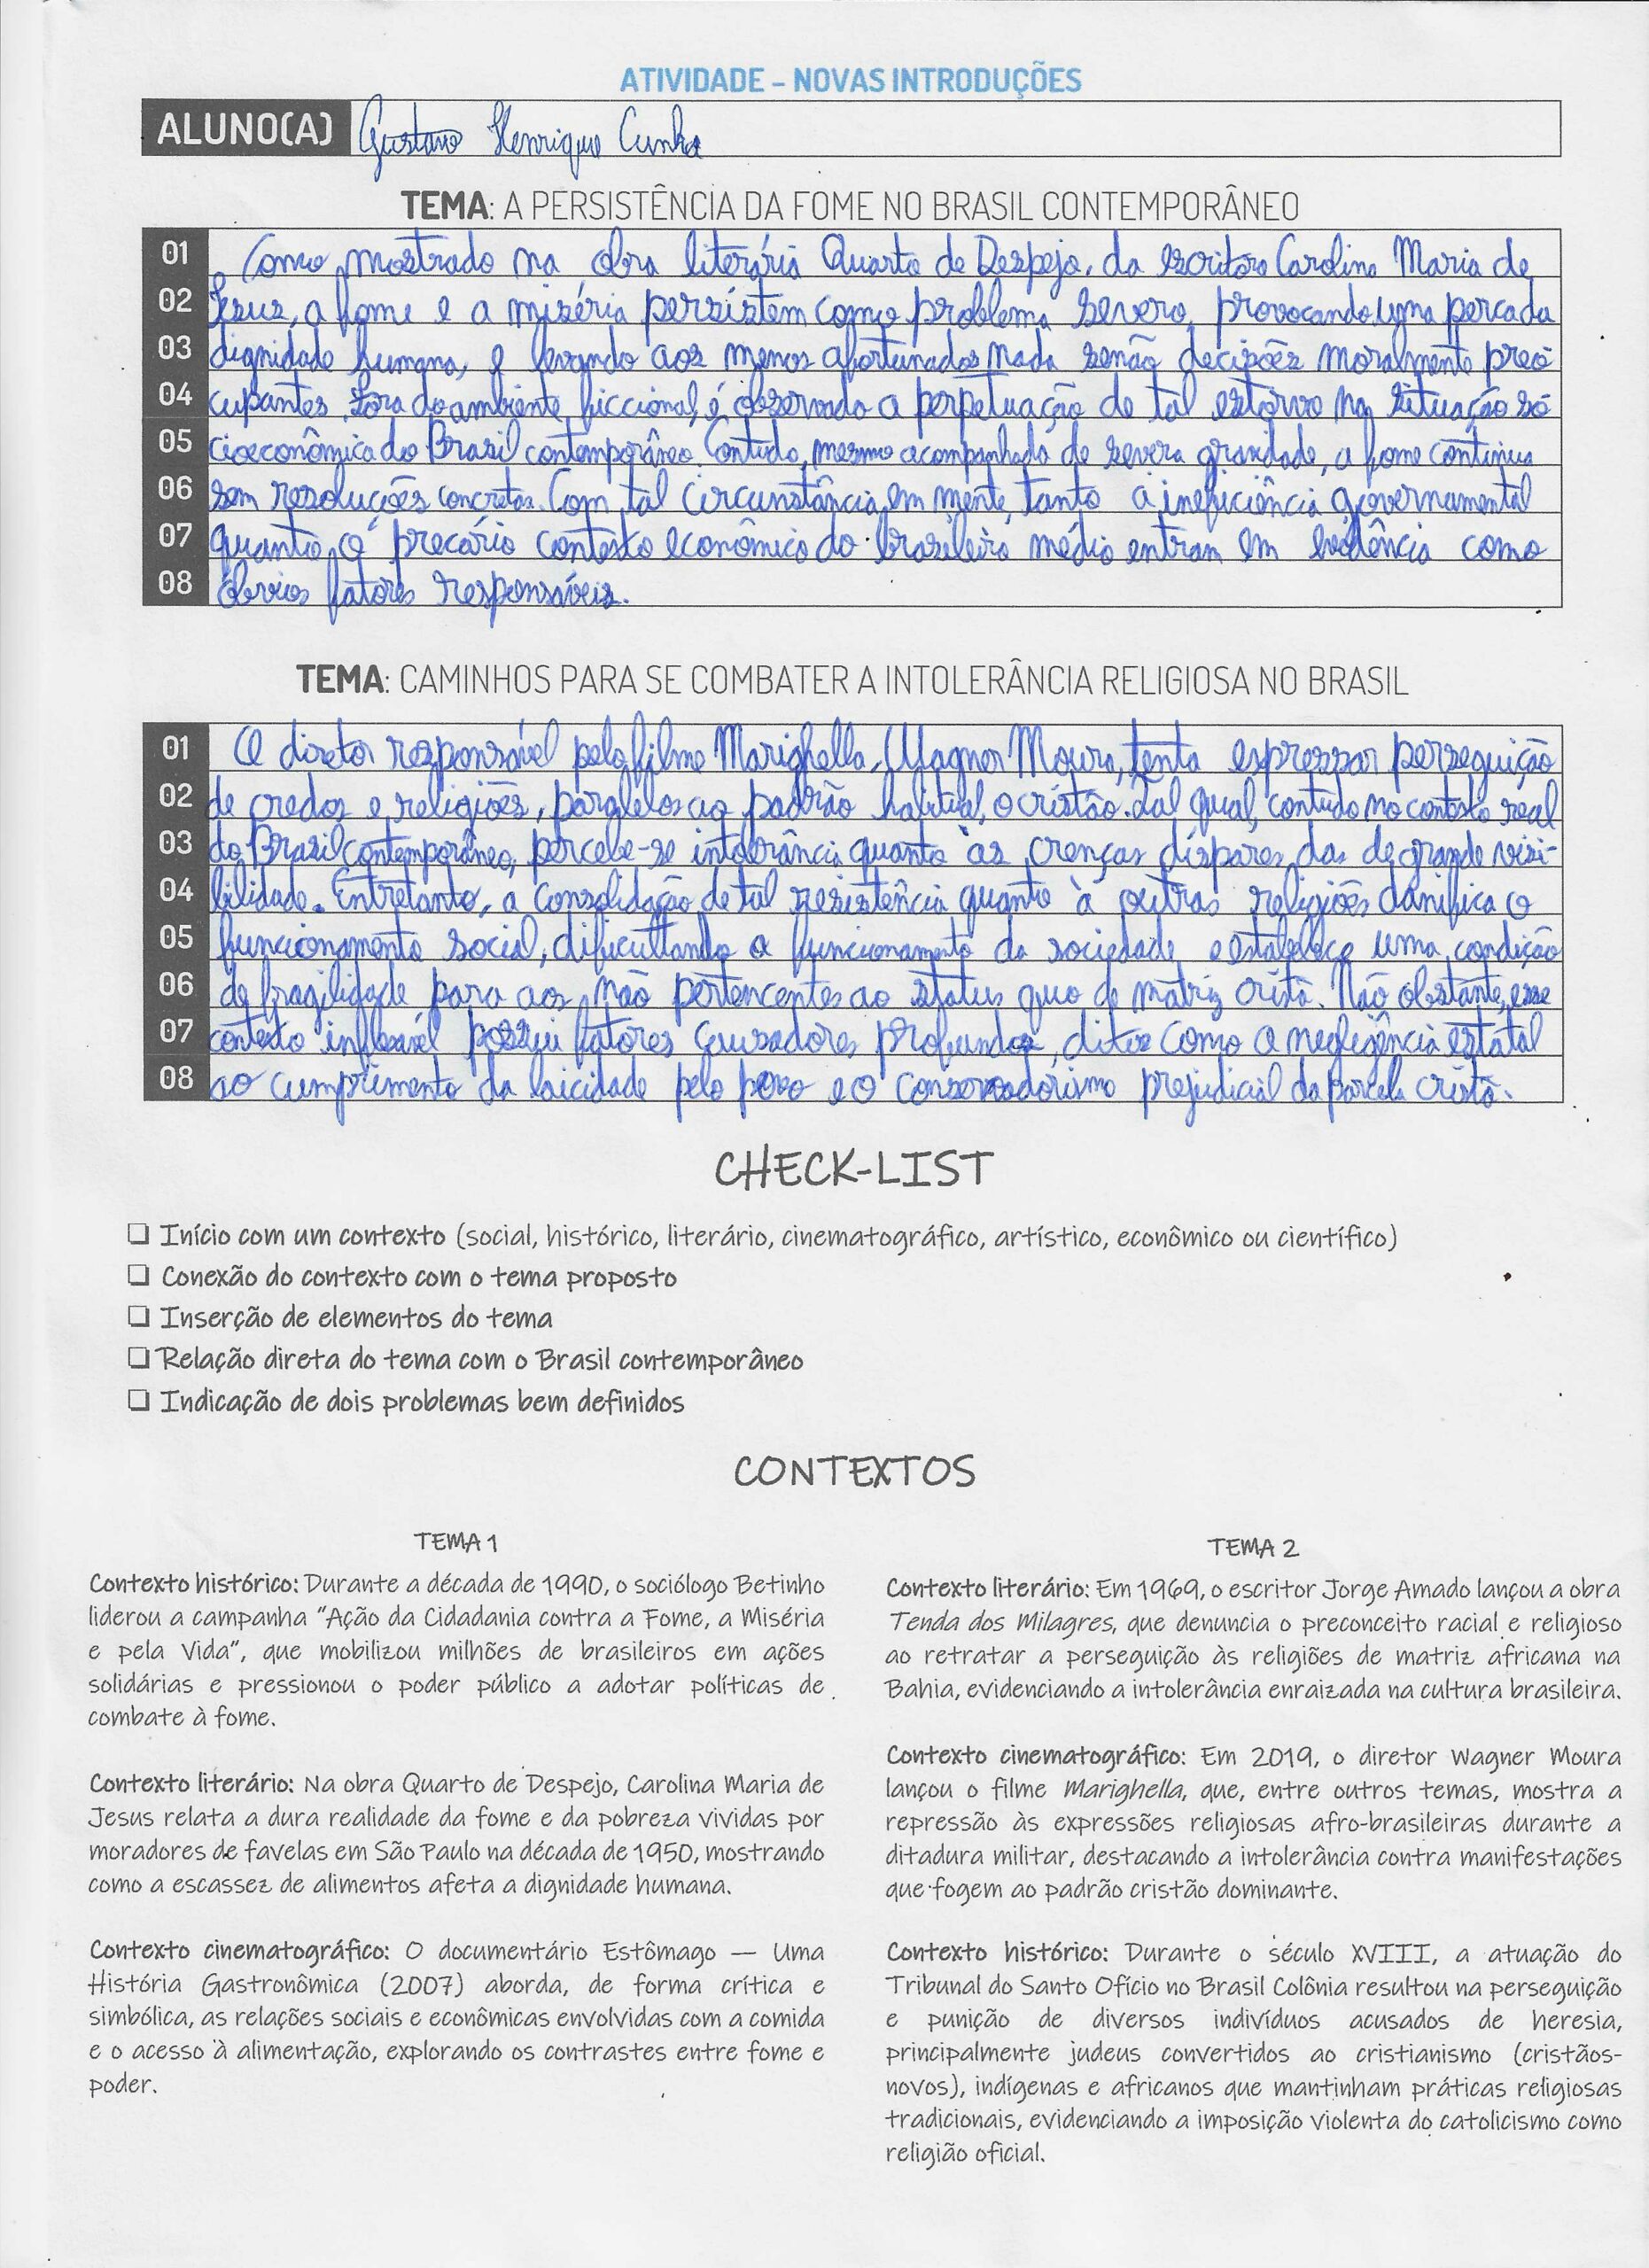 ATIVIDADE – NOVAS INTRODUÇÕES
ALUNO(A) Gustavo Henrique Cunha
TEMA: A PERSISTÊNCIA DA FOME NO BRASIL CONTEMPORÂNEO
01 Como mostrado na obra literária Quarto de Despejo, da escritora Carolina Maria de
02 Jesus, a fome e a miséria persistem como problema severo, provocando uma perca da
03 dignidade humana, e levando aos menos afortunados nada senão decisões moralmente preo
04 cupantes. Fora do ambiente ficcional, é observado a perpetuação de tal estorvo na situação só
05 cioeconômica do Brasil contemporâneo. Contudo, mesmo acompanhada de severa gravidade, a fome continua
06 sem resoluções concretas. Com tal circunstância em mente, tanto a ineficiência governamental
07 quanto o precário contexto econômico do brasileiro médio entram em evidência como
08 óbvios fatores responsáveis.
TEMA: CAMINHOS PARA SE COMBATER A INTOLERÂNCIA RELIGIOSA NO BRASIL
01 O diretor responsável pelo filme Marighella, Wagner Moura, tenta expressar perseguição
02 de credos e religiões, paralelos ao padrão habitual, o cristão. Tal qual, contudo no contexto real
03 do Brasil contemporâneo, percebe-se intolerância quanto às crenças díspares das de grande visi-
04 bilidade. Entretanto, a consolidação de tal resistência quanto à outras religiões danifica o
05 funcionamento social, dificultando o funcionamento da sociedade e estabelece uma condição
06 de fragilidade para aos não pertencentes ao status quo de matriz cristã. Não obstante, esse
07 contexto inflexível possui fatores causadores profundos, ditos como a negligência estatal
08 ao cumprimento da laicidade pelo povo e o conservadorismo prejudicial da parcela cristã.
CHECK-LIST
❏ Início com um contexto (social, histórico, literário, cinematográfico, artístico, econômico ou científico)
❏ Conexão do contexto com o tema proposto
❏ Inserção de elementos do tema
❏ Relação direta do tema com o Brasil contemporâneo
❏ Indicação de dois problemas bem definidos
CONTEXTOS
TEMA 1
Contexto histórico: Durante a década de 1990, o sociólogo Betinho
liderou a campanha "Ação da Cidadania contra a Fome, a Miséria
e pela Vida", que mobilizou milhões de brasileiros em ações
solidárias e pressionou o poder público a adotar políticas de
combate à fome.
Contexto literário: Na obra Quarto de Despejo, Carolina Maria de
Jesus relata a dura realidade da fome e da pobreza vividas por
moradores de favelas em São Paulo na década de 1950, mostrando
como a escassez de alimentos afeta a dignidade humana.
Contexto cinematográfico: O documentário Estômago — Uma
História Gastronômica (2007) aborda, de forma crítica e
simbólica, as relações sociais e econômicas envolvidas com a comida
e o acesso à alimentação, explorando os contrastes entre fome e
poder.
TEMA 2
Contexto literário: Em 1969, o escritor Jorge Amado lançou a obra
Tenda dos Milagres, que denuncia o preconceito racial e religioso
ao retratar a perseguição às religiões de matriz africana na
Bahia, evidenciando a intolerância enraizada na cultura brasileira.
Contexto cinematográfico: Em 2019, o diretor Wagner Moura
lançou o filme Marighella, que, entre outros temas, mostra a
repressão às expressões religiosas afro-brasileiras durante a
ditadura militar, destacando a intolerância contra manifestações
que fogem ao padrão cristão dominante.
Contexto histórico: Durante o século XVIII, a atuação do
Tribunal do Santo Ofício no Brasil Colônia resultou na perseguição
e punição de diversos indivíduos acusados de heresia,
principalmente judeus convertidos ao cristianismo (cristãos-
novos), indígenas e africanos que mantinham práticas religiosas
tradicionais, evidenciando a imposição violenta do catolicismo como
religião oficial.